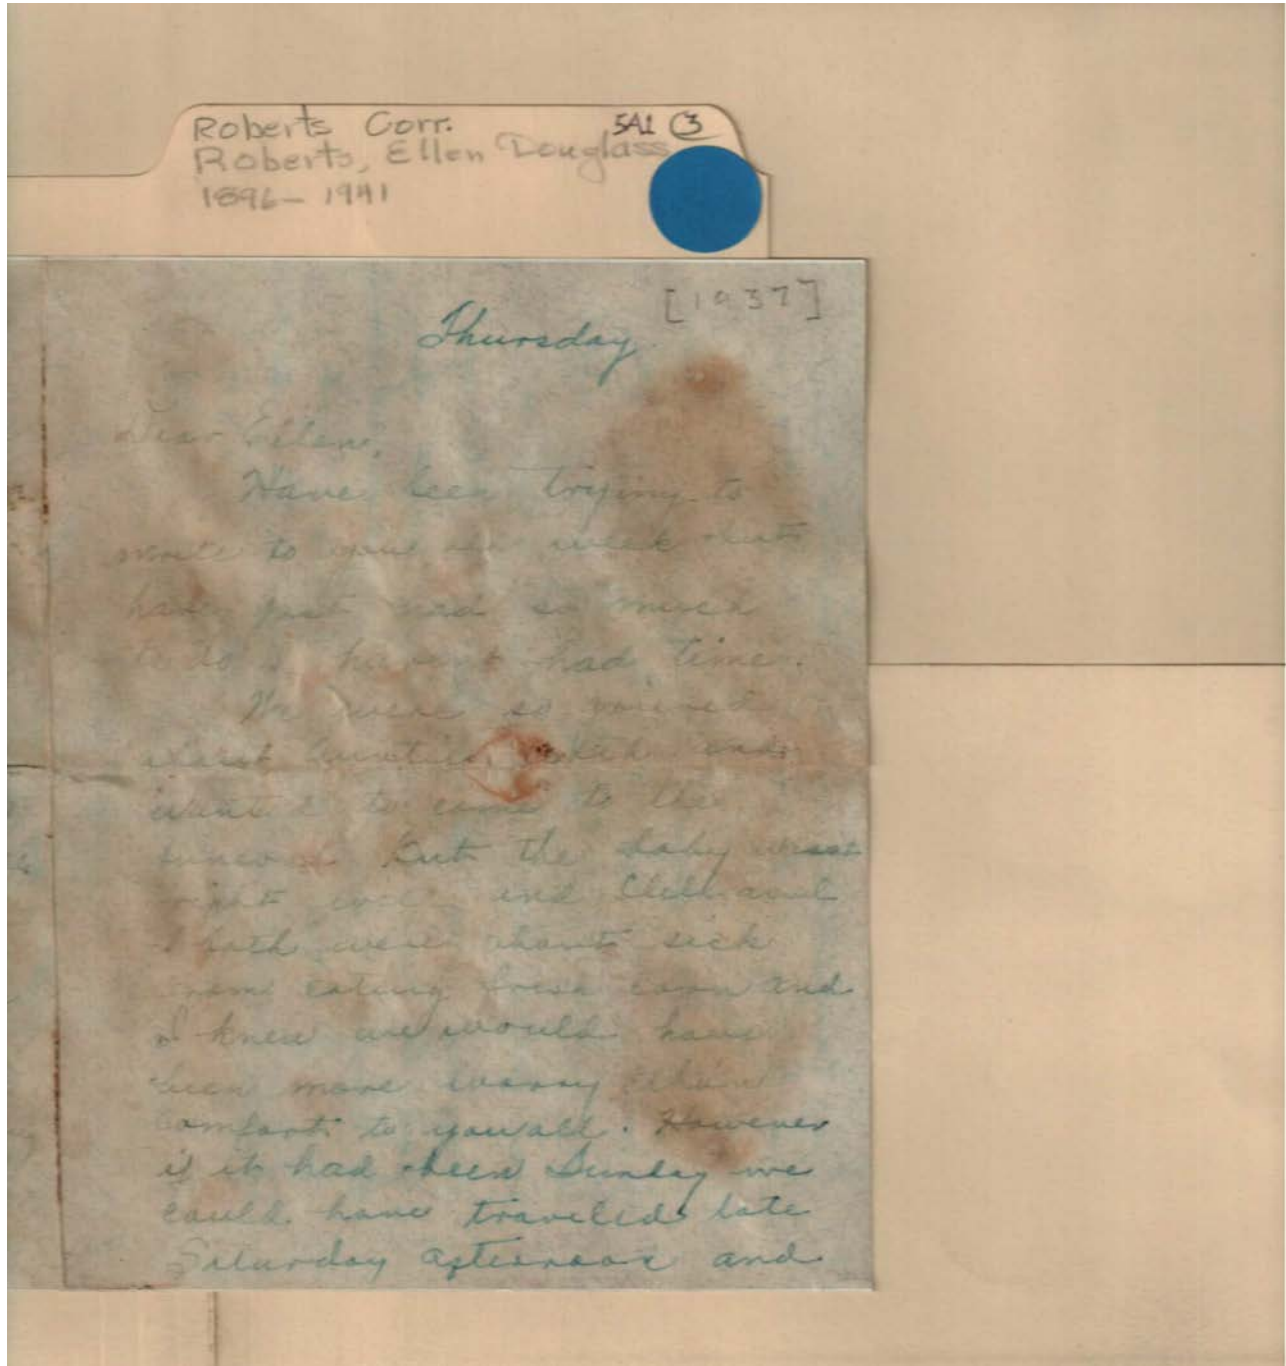 Roberts Corr. 5A1 3
Roberts, Ellen Douglass
1896- 1941
[1937]
Thursday
Dear Ellen,
Have been trying to
write to you all week but
have just had so much
to do I haven't had time.
We were so
about Auntie's and
wanted to come to the
funeral but the baby
right and
I both were about sick
from eating fresh corn and
I knew we would have
been more worry than
comfort to you all. However
if it had been Sunday we
could have traveled late
Saturday afternoon and